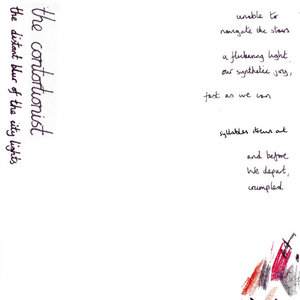 the contortionist
the distant blur of the city lights
unable to
navigate the stars
a flickering light
our synthetic joy,
fast as we can
syllables
and before
we depart,
crumpled